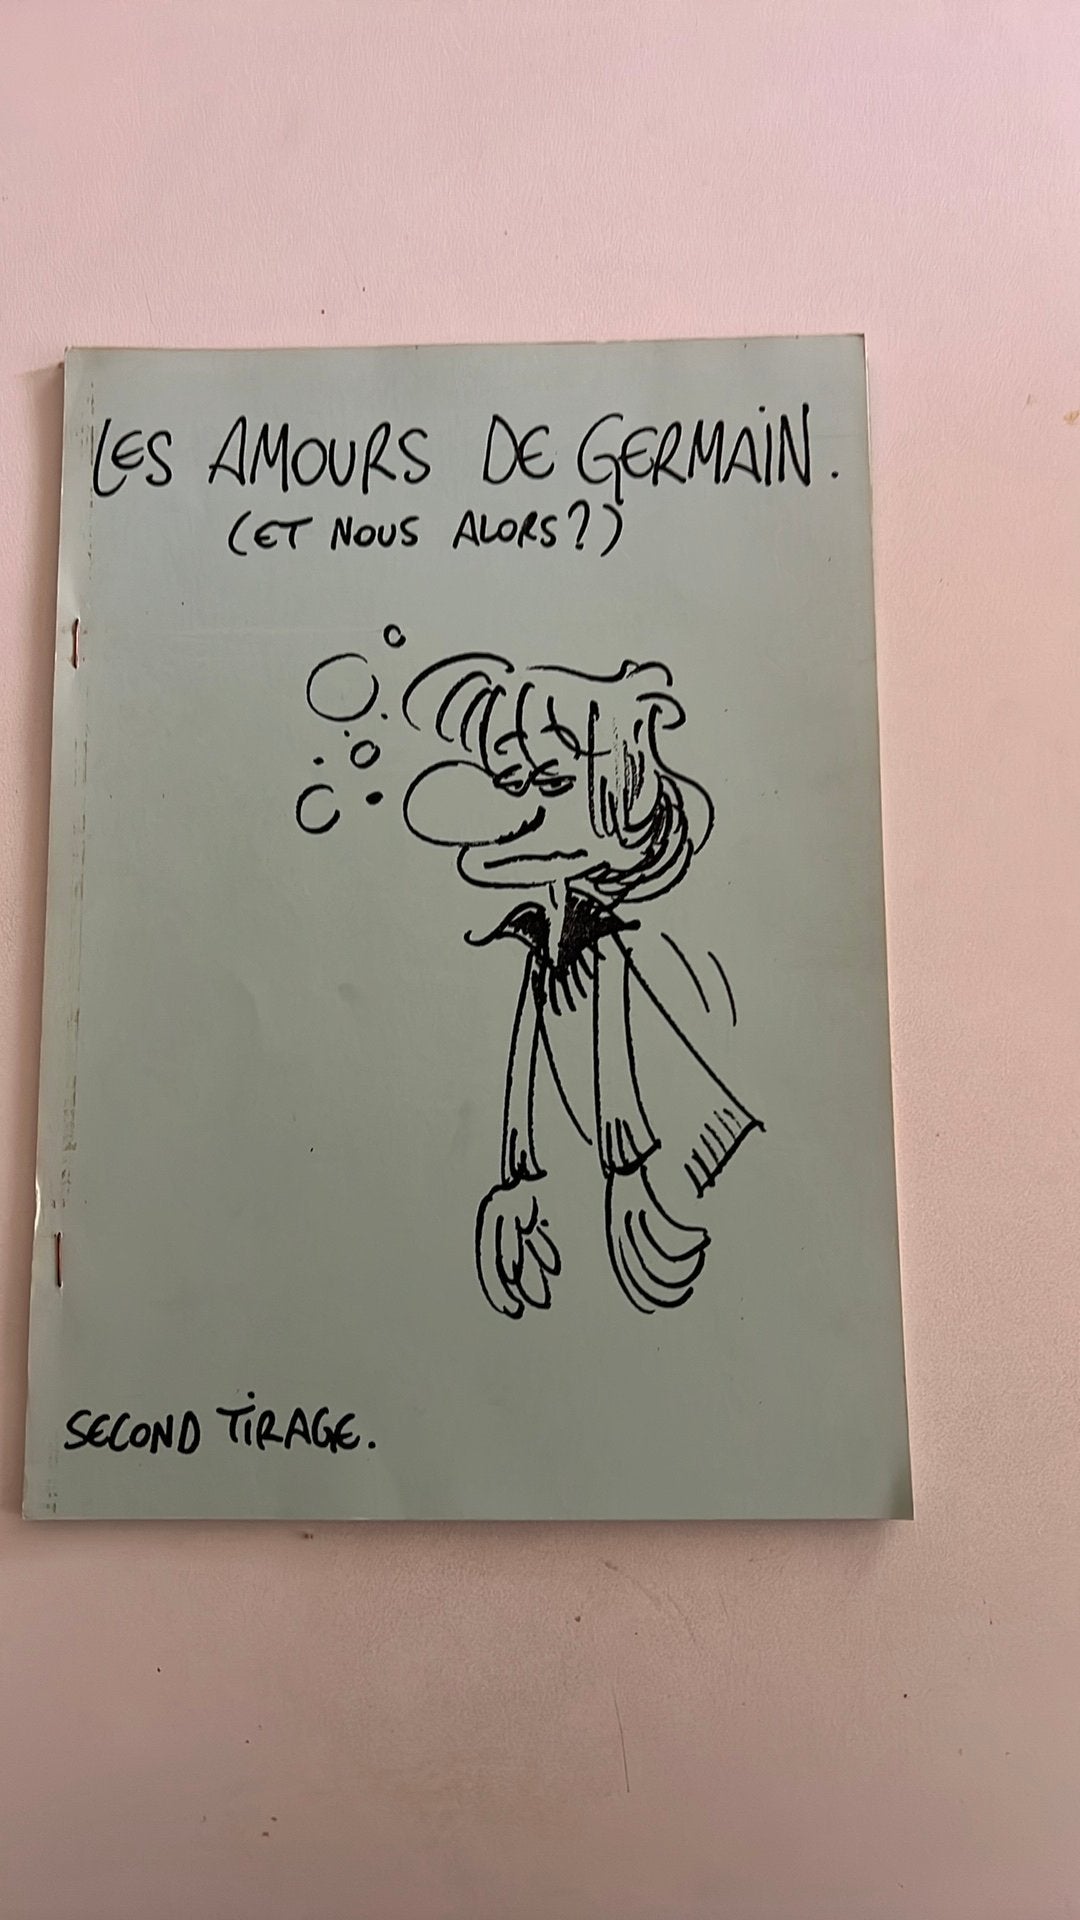 LES AMOURS DE GERMAIN.
(ET NOUS ALORS?)
SECOND TIRAGE.